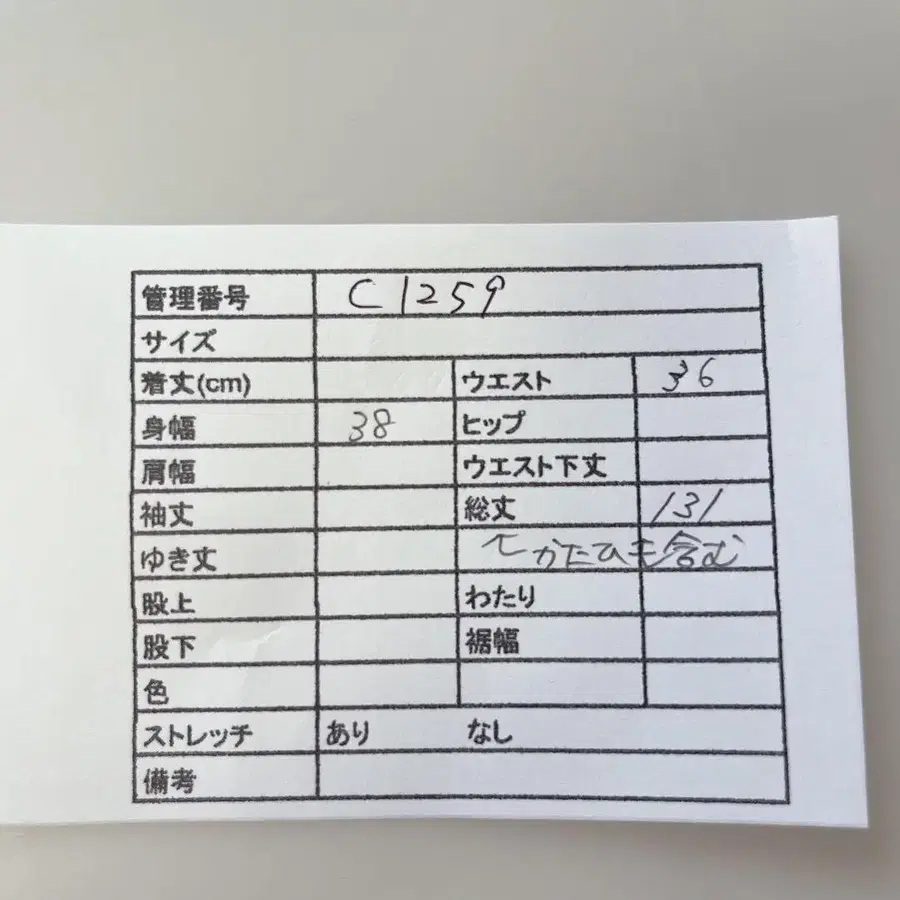 管理番号 C1259
サイズ
着丈(cm) ウエスト 36
身幅 38 ヒップ
肩幅 ウエスト下丈
袖丈 総丈 131
ゆき丈 ↑かたひも含む
股上 わたり
股下 裾幅
色
ストレッチ あり なし
備考